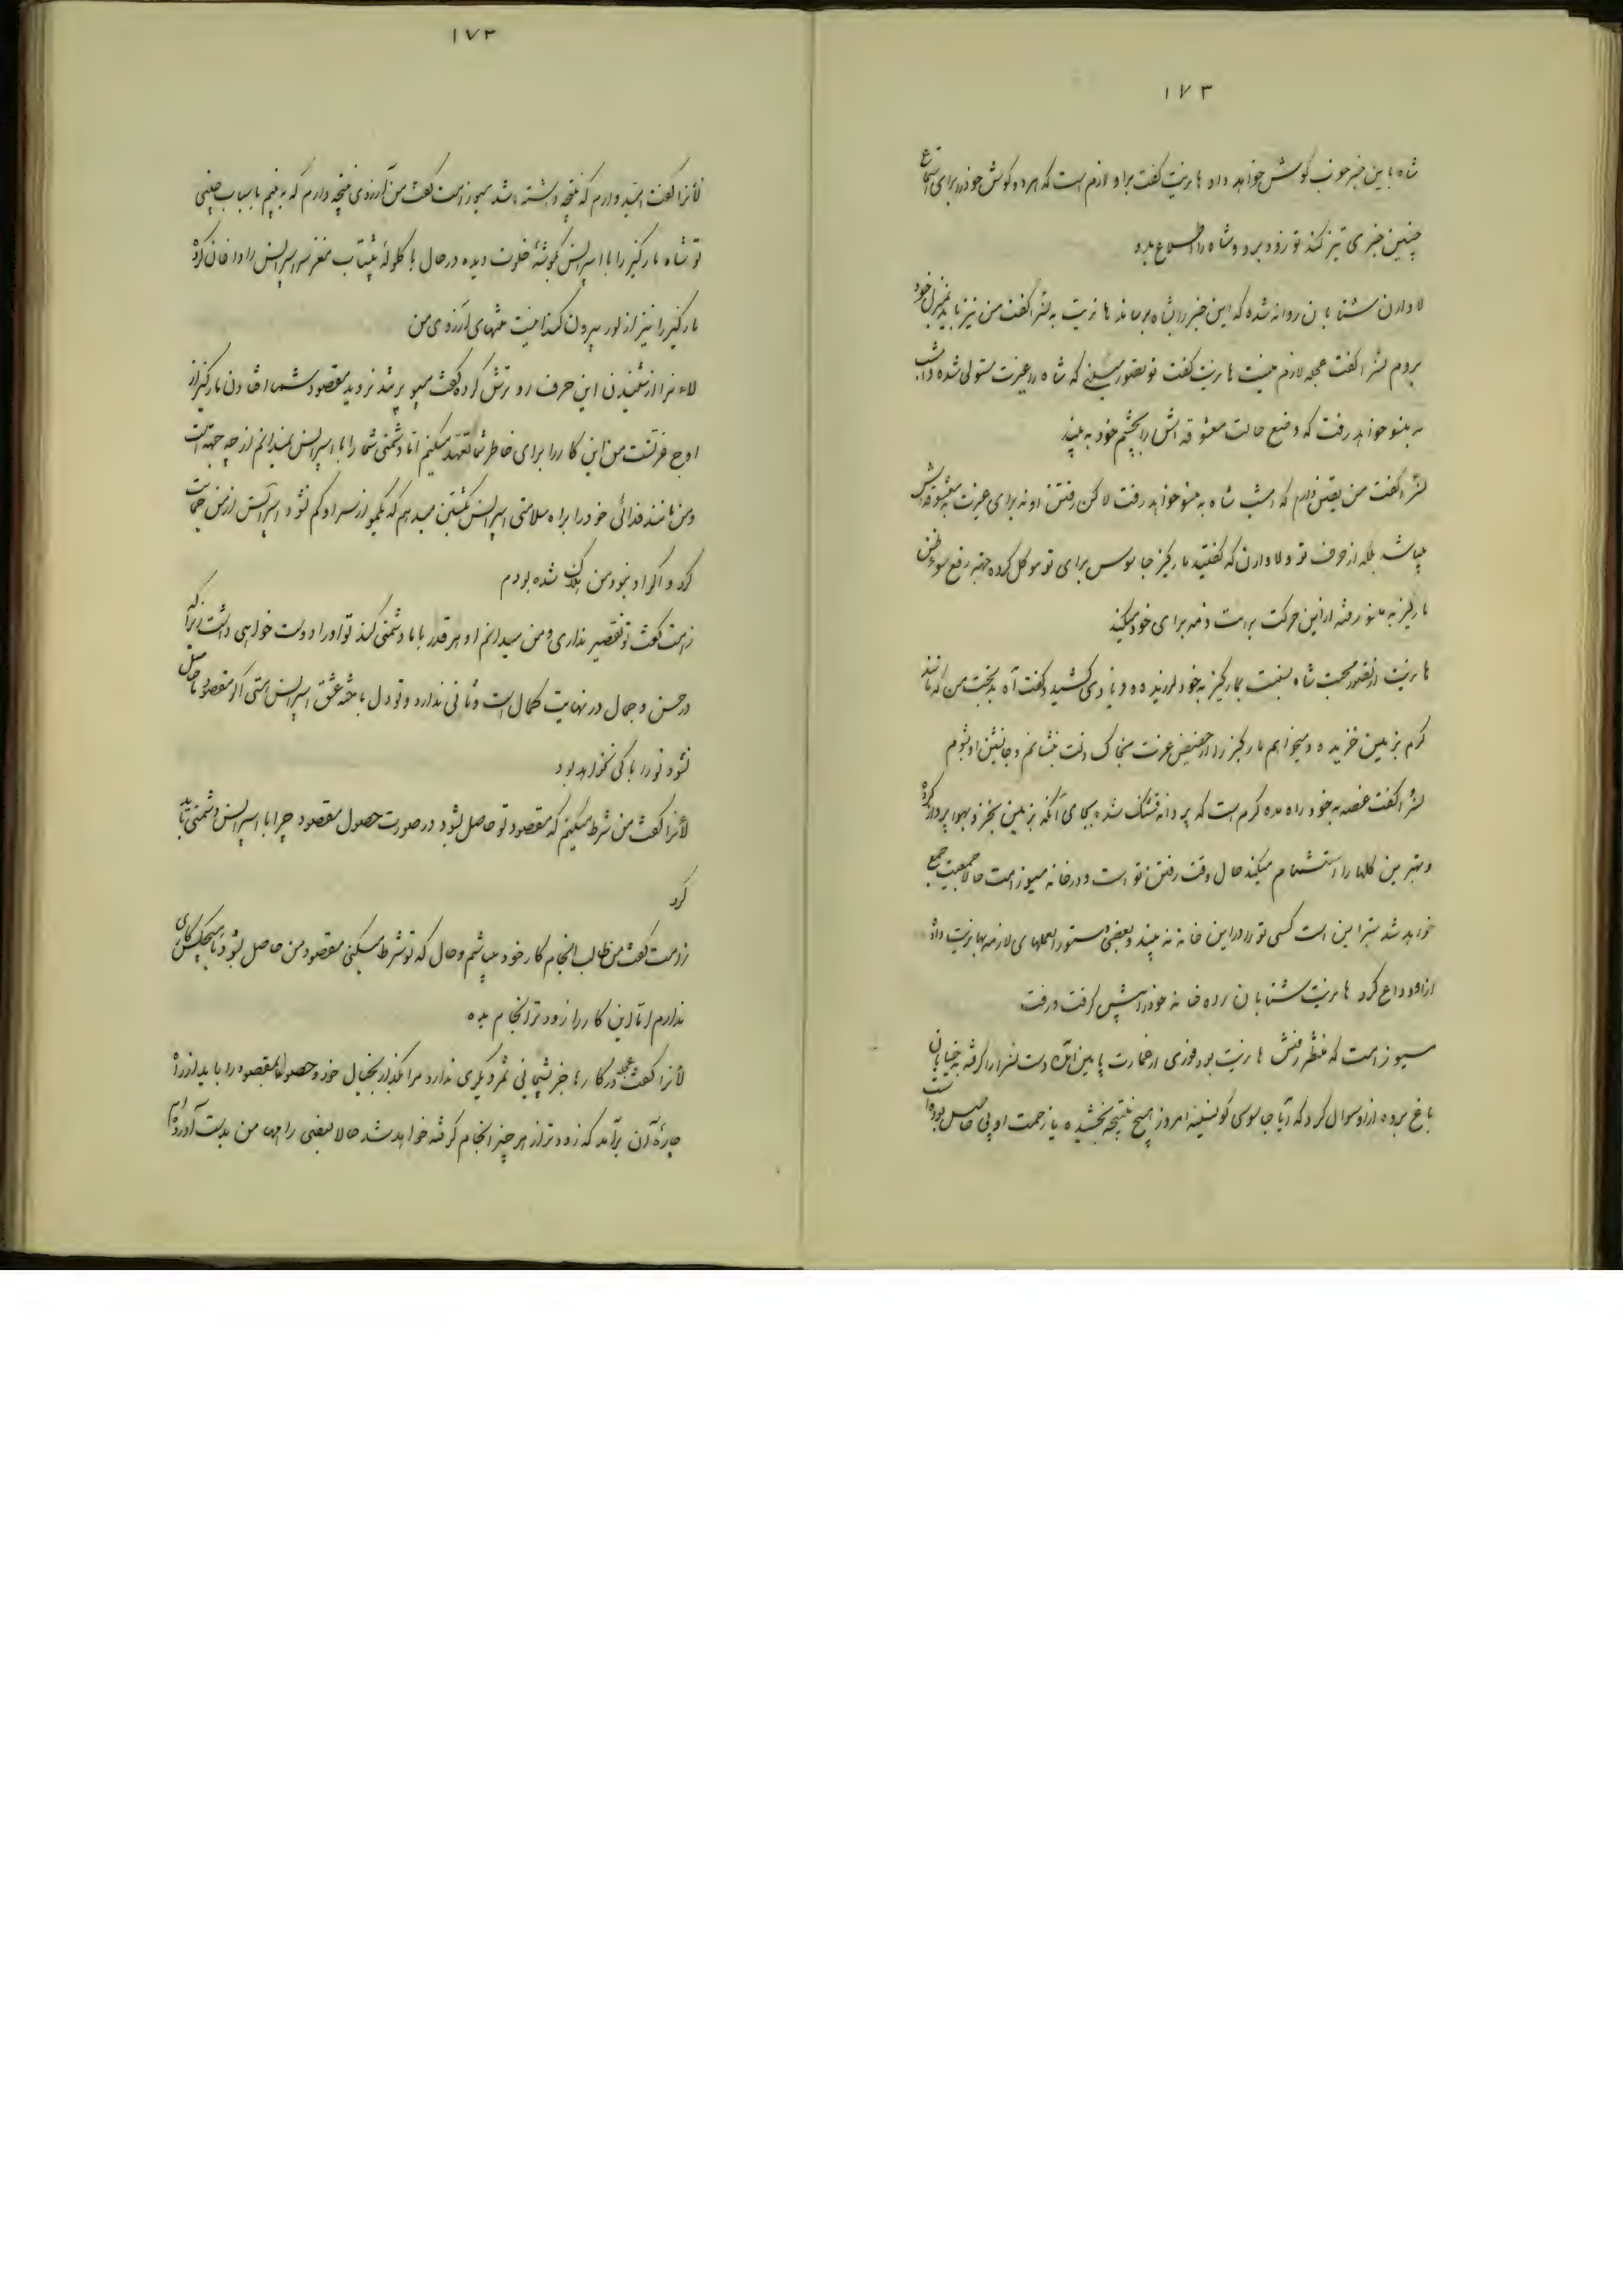 ۱۷۳
شاه باین خبر خوب گوش خواهد داد هانریت گفت براو لازم است که هر دو گوش خود را برای استماع
چنین خبری تیز کند تو زود برو و شاه را اطلاع بده
لاوارن شتابان روانه شده که این خبر را بشاه برساند هانریت به لنرا گفت من نیز باید بمنزل خود
بروم لنرا گفت عجله لازم نیست هانریت گفت تو تصور میکنی که شاه را غیرت مستولی شده و امشب
به منو خواهد رفت که وضع حالت معشوقه اش را بچشم خود به بیند
لنرا گفت من یقین دارم که امشب شاه به منو خواهد رفت لاکن رفتن او نه برای غیرت به معشوقه اش
میباشد بلکه از حرف تو و لاوارن که گفتید مارکیز جاسوس برای تو موکل کرده جهت رفع سوء ظن
مارکیز به منو رفته از این حرکت برائت ذمه برای خود میکند
هانریت از تصور محبت شاه نسبت بمارکیز به خود لرزیده و فریادی کشید و گفت آه بدبخت من که مانند
کرم بزمین خزیده و میخواهم مارکیز را از حضیض عزت بخاک ذلت بنشانم و جانشین او بشوم
لنرا گفت غصه به خود راه مده کرم است که پروانه قشنگ شده بجای آنکه بزمین بخزد بهوا پرواز کرده
و بهترین گلها را استشمام میکند حال وقت رفتن تو است و در خانه میوزامت حالا جمعیت جمع
خواهد شد بهتر این است کسی تو را در این خانه نه بیند و بعضی دستورالعملهای لازمه بهانریت داده
از او وداع کرد هانریت شتابان راه خانه خود را پیش گرفت و رفت
میوزامت که منتظر رفتن هانریت بود فوری از عمارت پایین آمده دست لنرا را گرفته به خیابان
باغ برده از او سوال کرد که آیا جاسوسی گونسیفه امروز هیچ نتیجه بخشیده یا زحمت او بی حاصل بوده است
۱۷۳
لأنرا گفت امید وارم که نتیجه داشته باشد میوزامت گفت من آرزوی نتیجه دارم که به بینم باسباب چینی
تو شاه مارکیز را با اسپرانس بگوشه خلوت دیده در حال با گلوله پیشتاب مغز سر اسپرانس را داغان کرده
مارکیز را نیز از لور بیرون کند اینست منتهای آرزوی من
لاءنرا از شنیدن این حرف رو ترش کرده گفت میو پر تند نروید مقصود شما افتادن مارکیز از
اوج عزتست من این کار را برای خاطر شما تعهد میکنم اما دشمنی شما را با اسپرانس نمیدانم از چه جهت است
و من مانند فدائی خود را براه سلامتی اسپرانس بکشتن میدهم که یکمو از سر او کم نشود اسپرانس از من حمایت
کرد و اگر او نبود من هلاک شده بودم
زامت گفت تو تقصیر نداری و من میدانم او هر قدر با ما دشمنی کند تو او را دوست خواهی داشت زیرا که
در حسن و جمال در نهایت کمال است و ثانی ندارد و تو دل باخته عشق اسپرانس هستی اگر مقصود ما حاصل
نشود تو را باکی نخواهد بود
لأنرا گفت من شرط میکنم که مقصود تو حاصل بشود در صورت حصول مقصود چرا با اسپرانس دشمنی باید
کرد
زامت گفت من طالب انجام کار خود میباشم و حال که تو شرط میکنی مقصود من حاصل بشود با هیچکس کاری
ندارم اما این کار را زودتر انجام بده
لأنرا گفت عجله در کارها جز پشیمانی ثمر دیگری ندارد مرا بگذار بخیال خود و حصول مقصود را باید از راه
چاره آن برآمد که زودتر از هر چیز انجام گرفته خواهد شد حالا بعضی را من بدست آورده ام